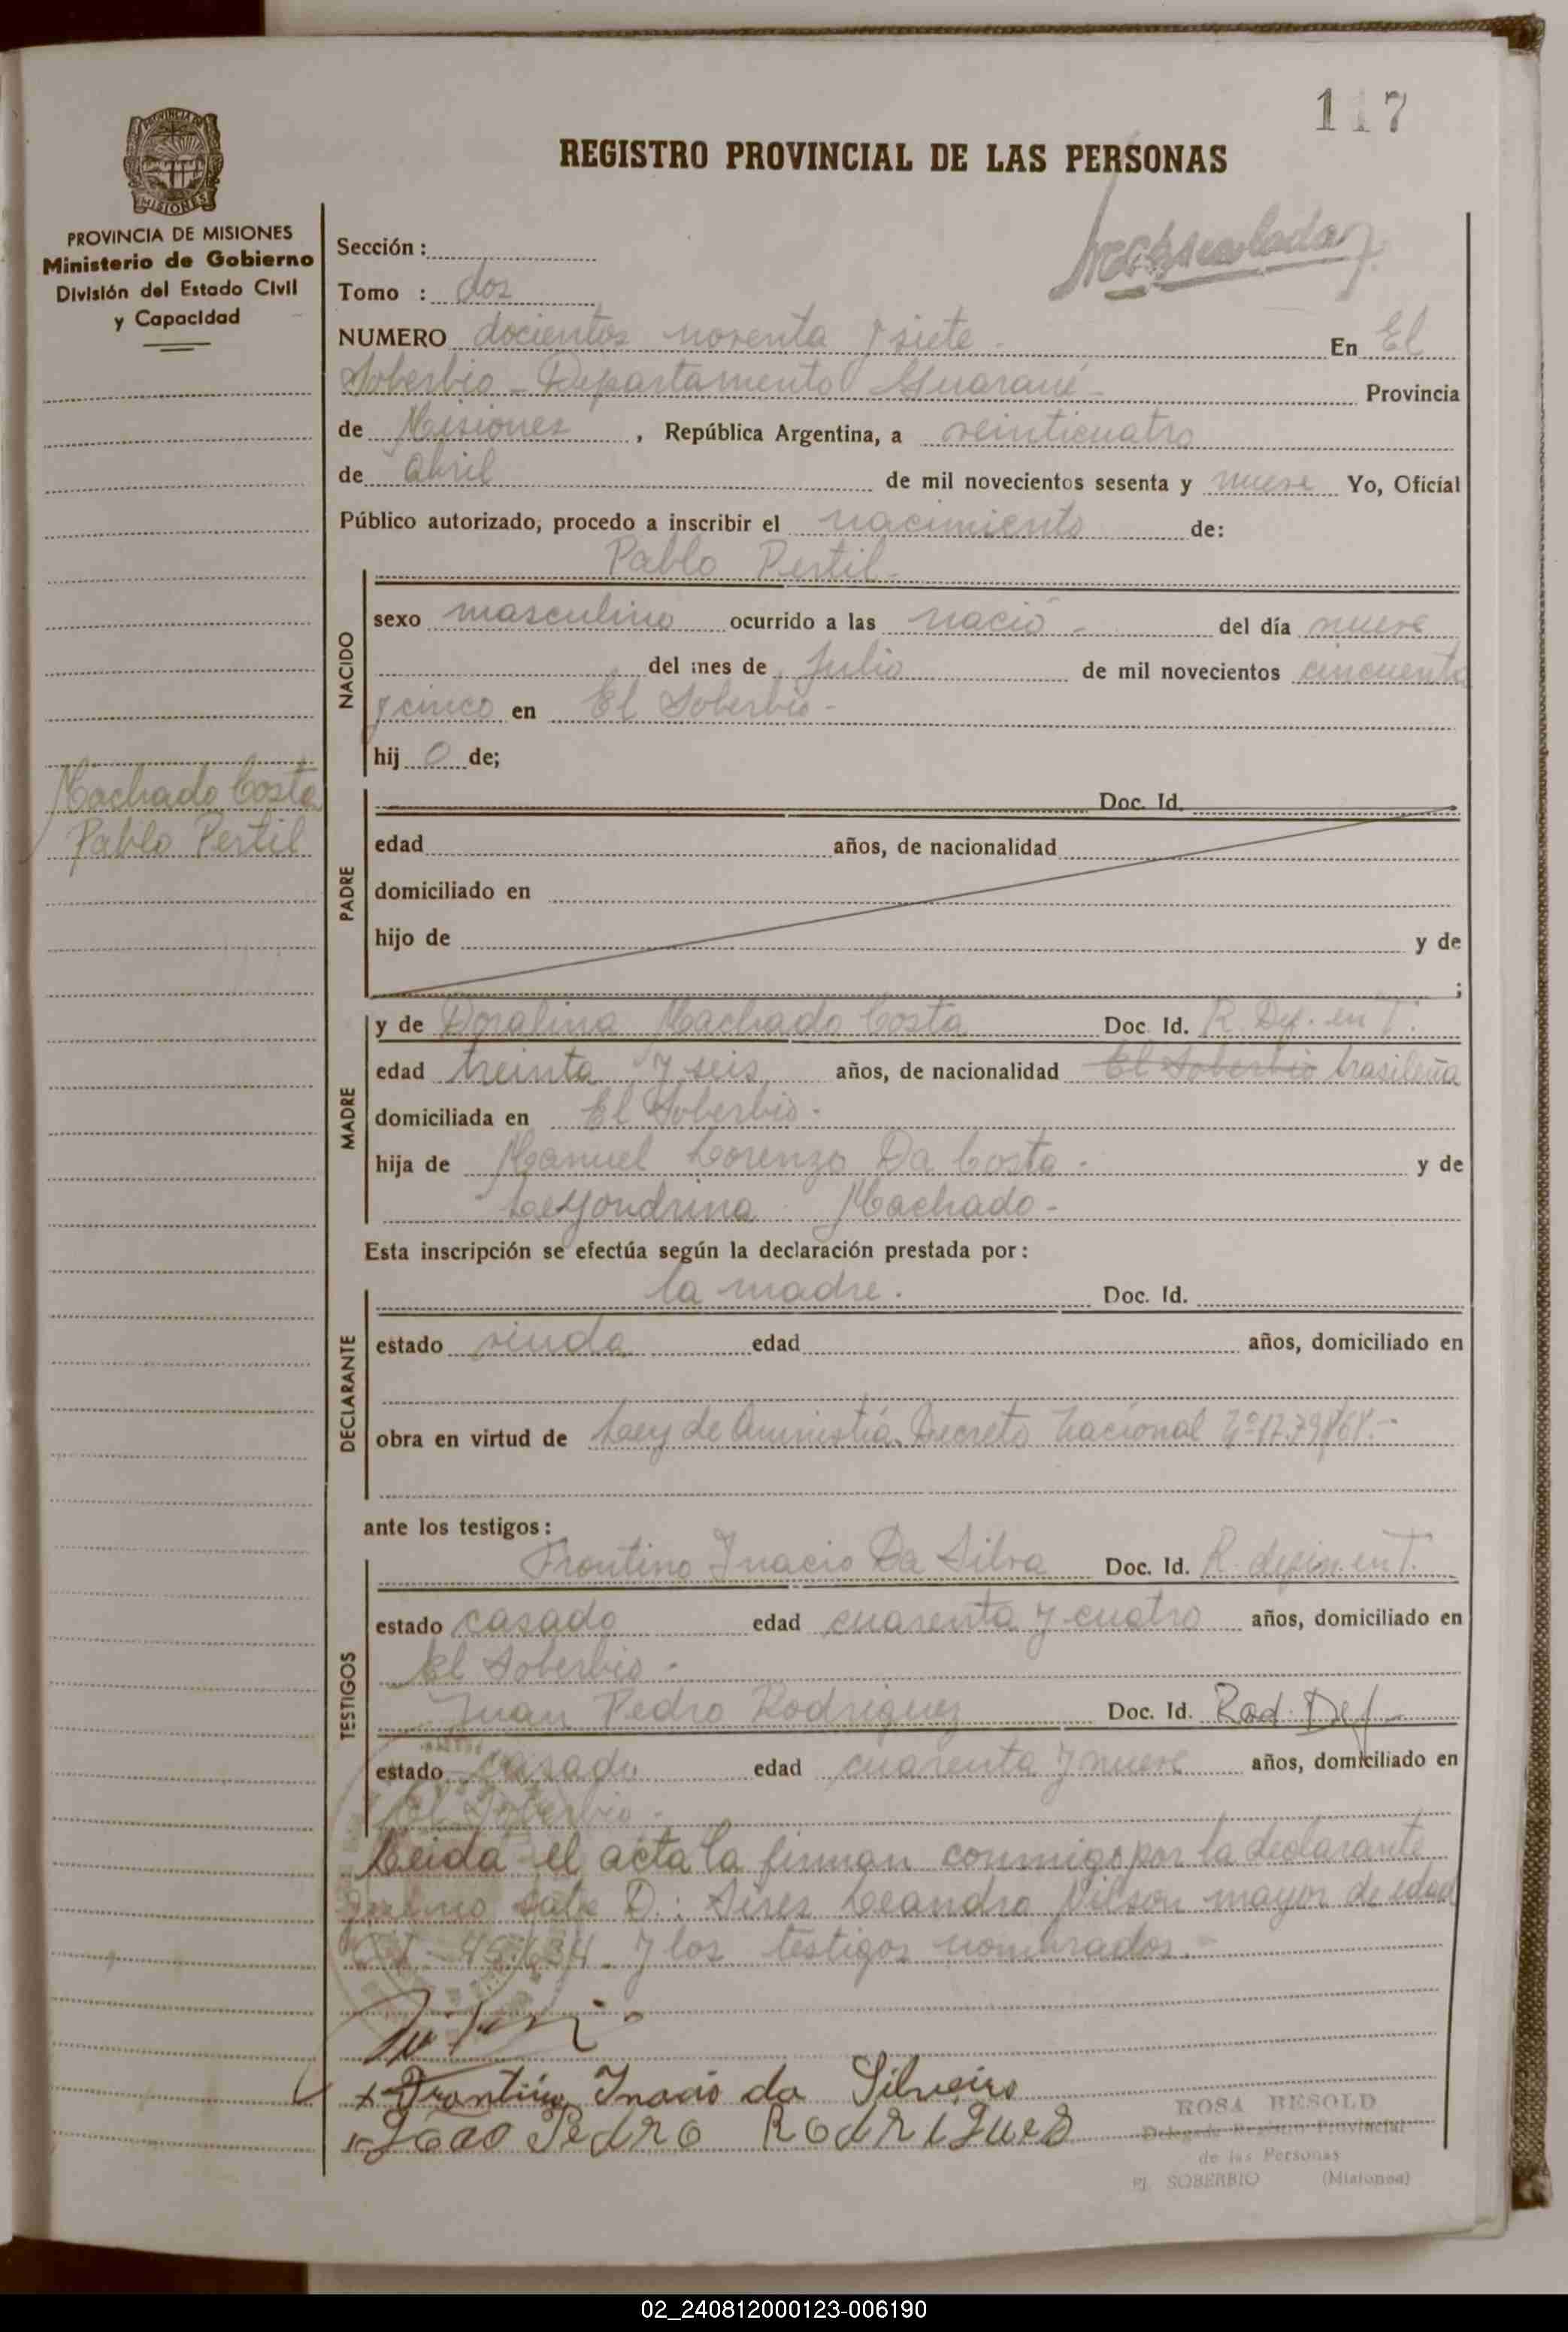 117
REGISTRO PROVINCIAL DE LAS PERSONAS
PROVINCIA DE MISIONES
Ministerio de Gobierno
División del Estado Civil
y Capacidad
Sección :
Tomo : dos
NUMERO docientos noventa y siete - En El
Soberbio - Departamento Guaraní - Provincia
de Misiones , República Argentina, a veinticuatro
de abril de mil novecientos sesenta y nueve Yo, Oficial
Público autorizado, procedo a inscribir el nacimiento de:
Pablo Pertil -
NACIDO
sexo masculino ocurrido a las nació - del día nueve
del mes de Julio de mil novecientos cincuenta
y cinco en El Soberbio -
hij o de;
Machado Costa
Pablo Pertil
PADRE
Doc. Id.
edad años, de nacionalidad
domiciliado en
hijo de y de
;
MADRE
y de Doralina Machado Costa Doc. Id. R. Def. en T.
edad treinta y seis años, de nacionalidad El Soberbio brasileña
domiciliada en El Soberbio -
hija de Manuel Lorenzo Da Costa - y de
Machado -
Esta inscripción se efectúa según la declaración prestada por:
DECLARANTE
la madre. Doc. Id.
estado viuda edad años, domiciliado en
obra en virtud de Ley de Amnistía Decreto Nacional
ante los testigos:
TESTIGOS
Frontino Inacio Da Silva Doc. Id. R. en T.
estado casado edad cuarenta y cuatro años, domiciliado en
El Soberbio -
Juan Pedro Rodriguez Doc. Id. Rad. Def -
estado casado edad cuarenta y nueve años, domiciliado en
El Soberbio -
Leida el acta la firman conmigo por la declarante
que no sabe D.: Sires Leandro Nilson mayor de edad
y los testigos nombrados. -
x Frontino Inacio da Silveira
João Pedro Rodrigues
ROSA BESOLD
Delegada Registro Provincial
de las Personas
El SOBERBIO (Misiones)
02_240812000123-006190